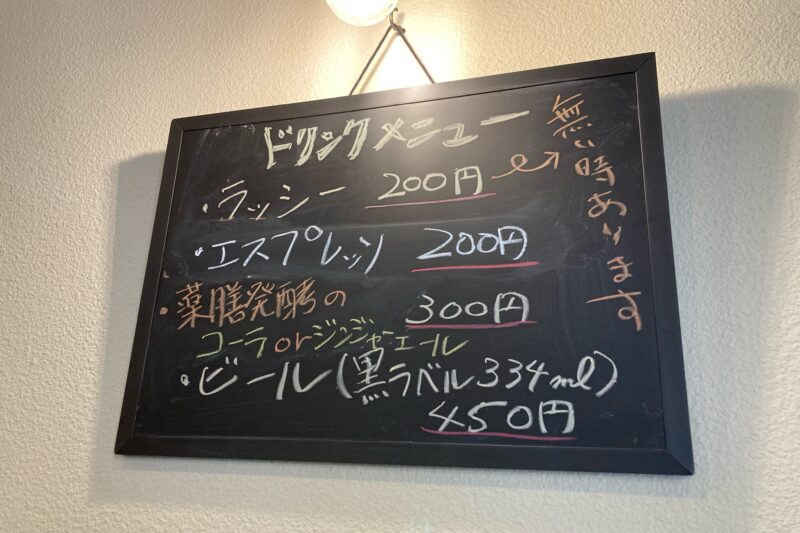 ドリンクメニュー
・ラッシー 200円
無い時あります
・エスプレッソ 200円
・薬膳発酵の 300円
コーラorジンジャーエール
・ビール(黒ラベル334ml)
450円